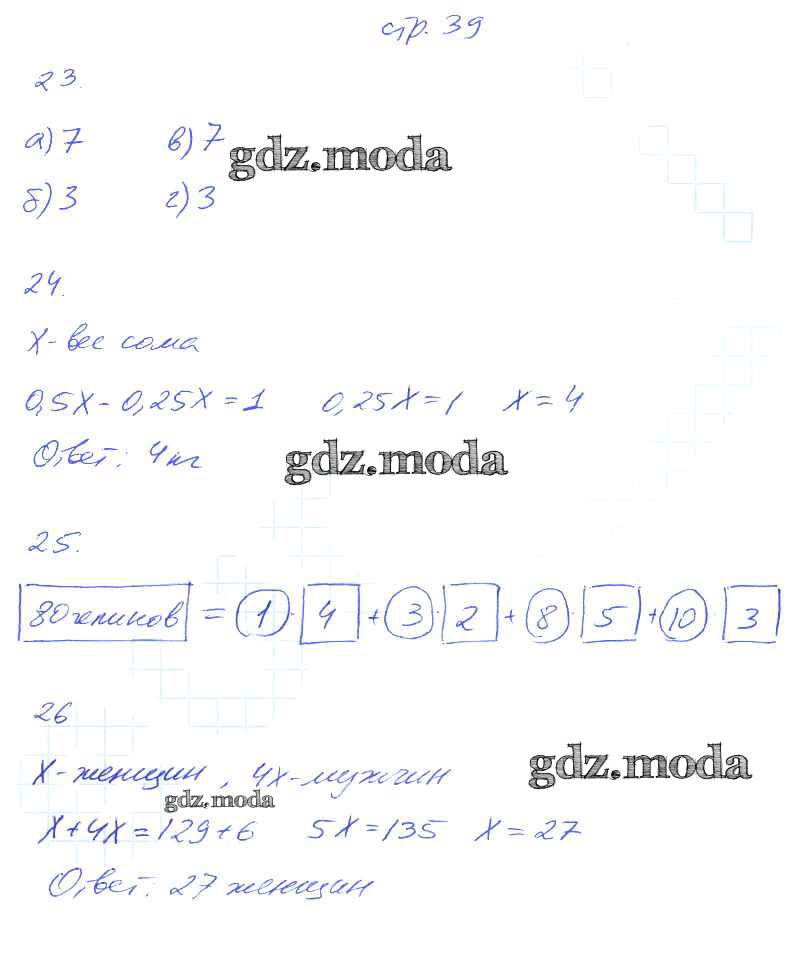 стр. 39
23.
а) 7 в) 7
gdz.moda
б) 3 г) 3
24.
X - вес сома
0,5X - 0,25X = 1 0,25X = 1 X = 4
Ответ: 4 кг
gdz.moda
25.
80 клинов = 1 · 4 + 3 · 2 + 8 · 5 + 10 · 3
26
X - женщин, 4X - мужчин
gdz.moda
gdz.moda
X + 4X = 129 + 6 5X = 135 X = 27
Ответ: 27 женщин